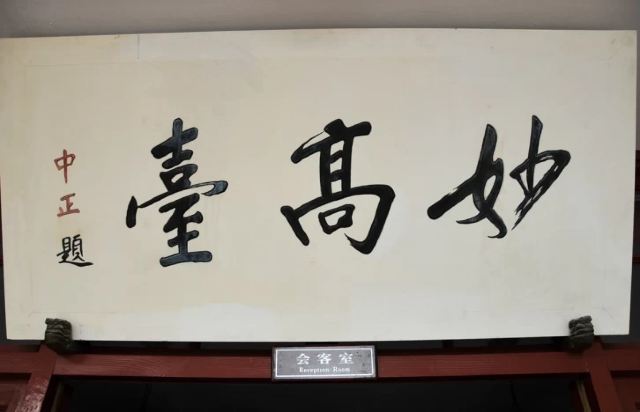 妙高臺
中正題
会客室
Reception Room